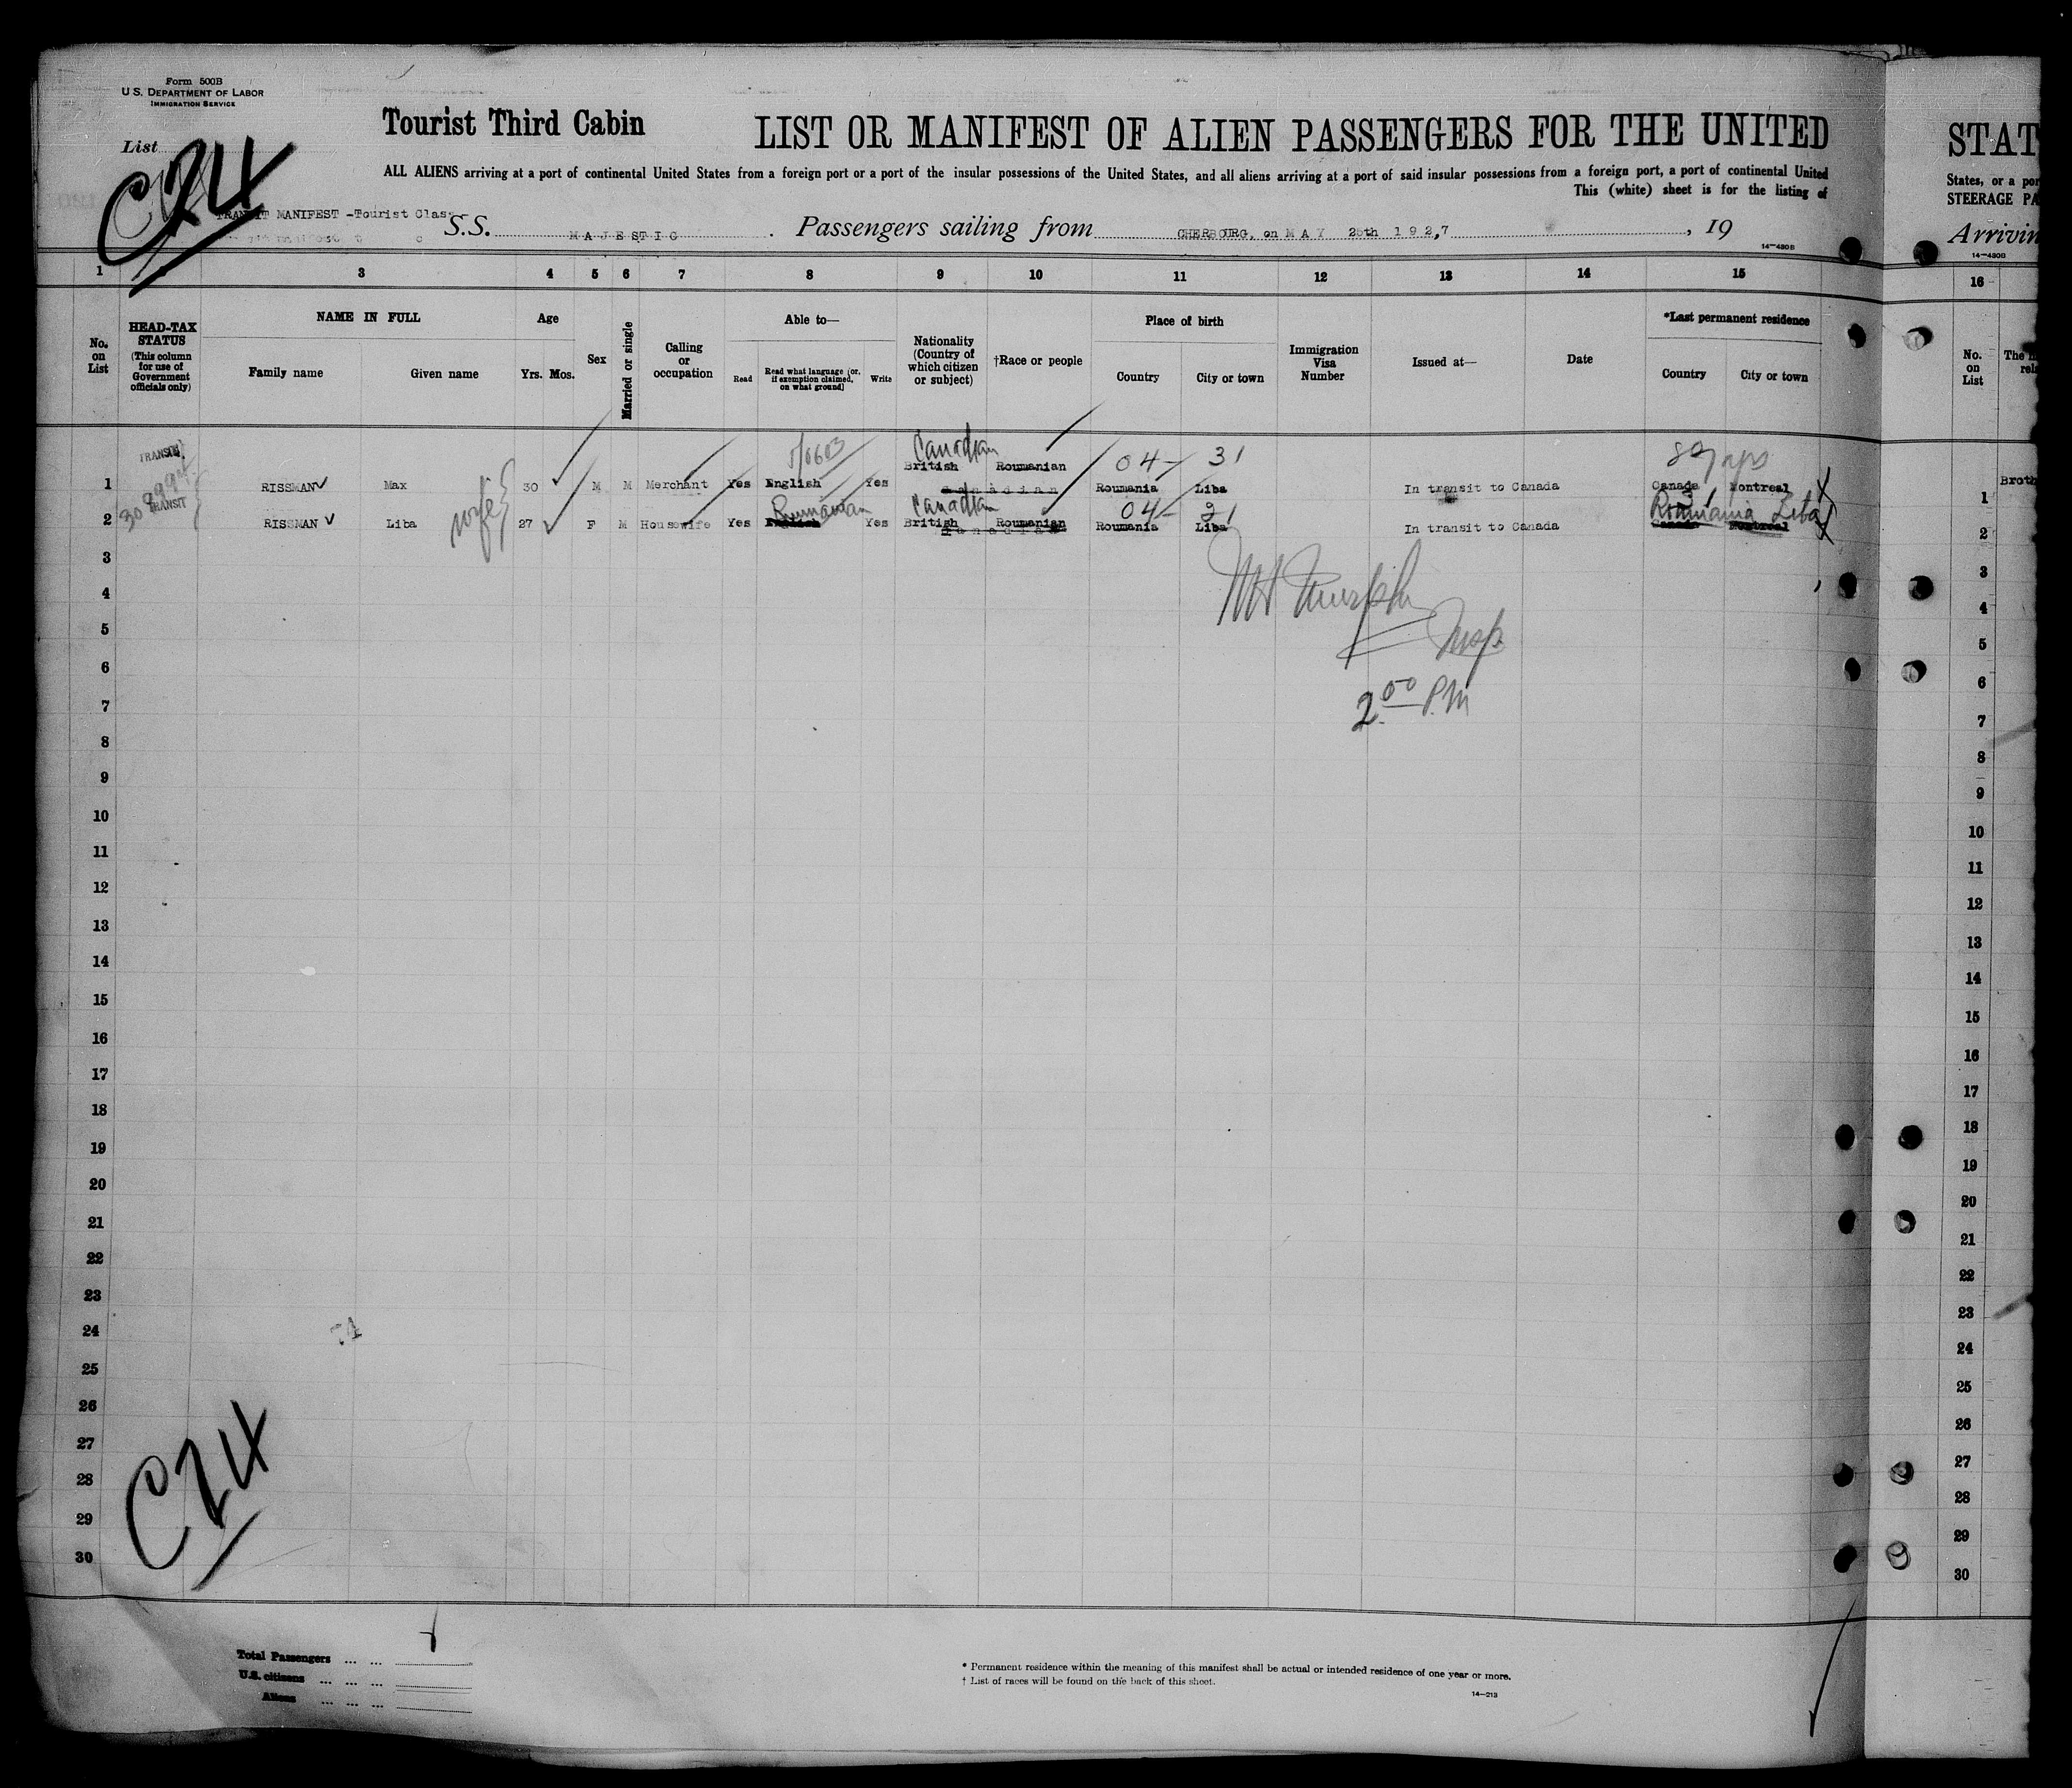 Form 500B
U.S. DEPARTMENT OF LABOR
IMMIGRATION SERVICE
List
C24
Tourist Third Cabin
LIST OR MANIFEST OF ALIEN PASSENGERS FOR THE UNITED
STAT
ALL ALIENS arriving at a port of continental United States from a foreign port or a port of the insular possessions of the United States, and all aliens arriving at a port of said insular possessions from a foreign port, a port of continental United
States, or a por
This (white) sheet is for the listing of
STEERAGE PA
TRANSIT MANIFEST -Tourist Class-
S.S. MAJESTIC. Passengers sailing from CHERBOURG, on MAY 25th 1927, 19
Arrivin
14-430B
14-430B
1 3 4 5 6 7 8 9 10 11 12 13 14 15 16
No. on List
HEAD-TAX STATUS (This column for use of Government officials only)
NAME IN FULL
Family name Given name
Age
Yrs. Mos.
Sex
Married or single
Calling or occupation
Able to—
Read
Read what language [or, if exemption claimed, on what ground]
Write
Nationality (Country of which citizen or subject)
†Race or people
Place of birth
Country City or town
Immigration Visa Number
Issued at—
Date
*Last permanent residence
Country City or town
No. on List
TRANSIT Canadian 04- 31
British Roumanian
1 RISSMAN Max 30 M M Merchant Yes English Yes Canadian Roumania Liba In transit to Canada Canada Montreal 1 Broth
TRANSIT wife Roumanian Canadian 04- 31 Roumania Liba
2 RISSMAN Liba 27 F M Housewife Yes English Yes British Roumanian Roumania Liba In transit to Canada Canada Montreal 2
Canadian
3 3
4 4
5 5
6 6
7 7
8 8
9 9
10 10
11 11
12 12
13 13
14 14
15 15
16 16
17 17
18 18
19 19
20 20
21 21
22 22
23 23
24 24
25 25
26 26
27 27
28 28
29 29
30 30
Murphy
Insp
2.00 P.M
C24
Total Passengers ... ...
U.S. citizens ... ... ...
Aliens ... ... ...
* Permanent residence within the meaning of this manifest shall be actual or intended residence of one year or more.
† List of races will be found on the back of this sheet.
14-213